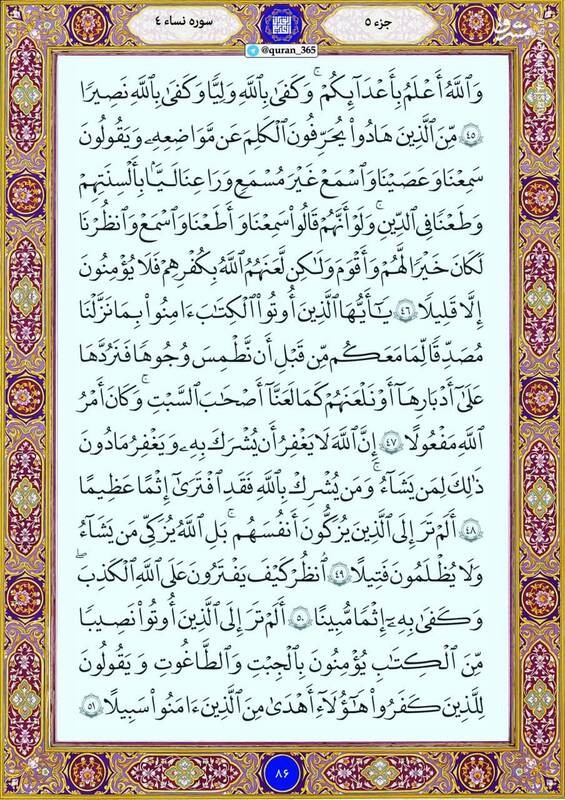 جزء ۵
سوره نساء ٤
@quran_365
وَاللَّهُ أَعْلَمُ بِأَعْدَائِكُمْ ۚ وَكَفَىٰ بِاللَّهِ وَلِيًّا وَكَفَىٰ بِاللَّهِ نَصِيرًا
﴿٤٥﴾ مِّنَ الَّذِينَ هَادُوا يُحَرِّفُونَ الْكَلِمَ عَن مَّوَاضِعِهِ وَيَقُولُونَ
سَمِعْنَا وَعَصَيْنَا وَاسْمَعْ غَيْرَ مُسْمَعٍ وَرَاعِنَا لَيًّا بِأَلْسِنَتِهِمْ
وَطَعْنًا فِي الدِّينِ ۚ وَلَوْ أَنَّهُمْ قَالُوا سَمِعْنَا وَأَطَعْنَا وَاسْمَعْ وَانظُرْنَا
لَكَانَ خَيْرًا لَّهُمْ وَأَقْوَمَ وَلَٰكِن لَّعَنَهُمُ اللَّهُ بِكُفْرِهِمْ فَلَا يُؤْمِنُونَ
إِلَّا قَلِيلًا ﴿٤٦﴾ يَا أَيُّهَا الَّذِينَ أُوتُوا الْكِتَابَ ءَامِنُوا بِمَا نَزَّلْنَا
مُصَدِّقًا لِّمَا مَعَكُم مِّن قَبْلِ أَن نَّطْمِسَ وُجُوهًا فَنَرُدَّهَا
عَلَىٰ أَدْبَارِهَا أَوْ نَلْعَنَهُمْ كَمَا لَعَنَّا أَصْحَابَ السَّبْتِ ۚ وَكَانَ أَمْرُ
اللَّهِ مَفْعُولًا ﴿٤٧﴾ إِنَّ اللَّهَ لَا يَغْفِرُ أَن يُشْرَكَ بِهِ وَيَغْفِرُ مَا دُونَ
ذَٰلِكَ لِمَن يَشَاءُ ۚ وَمَن يُشْرِكْ بِاللَّهِ فَقَدِ افْتَرَىٰ إِثْمًا عَظِيمًا
﴿٤٨﴾ أَلَمْ تَرَ إِلَى الَّذِينَ يُزَكُّونَ أَنفُسَهُم ۚ بَلِ اللَّهُ يُزَكِّي مَن يَشَاءُ
وَلَا يُظْلَمُونَ فَتِيلًا ﴿٤٩﴾ انظُرْ كَيْفَ يَفْتَرُونَ عَلَى اللَّهِ الْكَذِبَ ۖ
وَكَفَىٰ بِهِ إِثْمًا مُّبِينًا ﴿٥٠﴾ أَلَمْ تَرَ إِلَى الَّذِينَ أُوتُوا نَصِيبًا
مِّنَ الْكِتَابِ يُؤْمِنُونَ بِالْجِبْتِ وَالطَّاغُوتِ وَيَقُولُونَ
لِلَّذِينَ كَفَرُوا هَٰؤُلَاءِ أَهْدَىٰ مِنَ الَّذِينَ ءَامَنُوا سَبِيلًا ﴿٥١﴾
۸۶